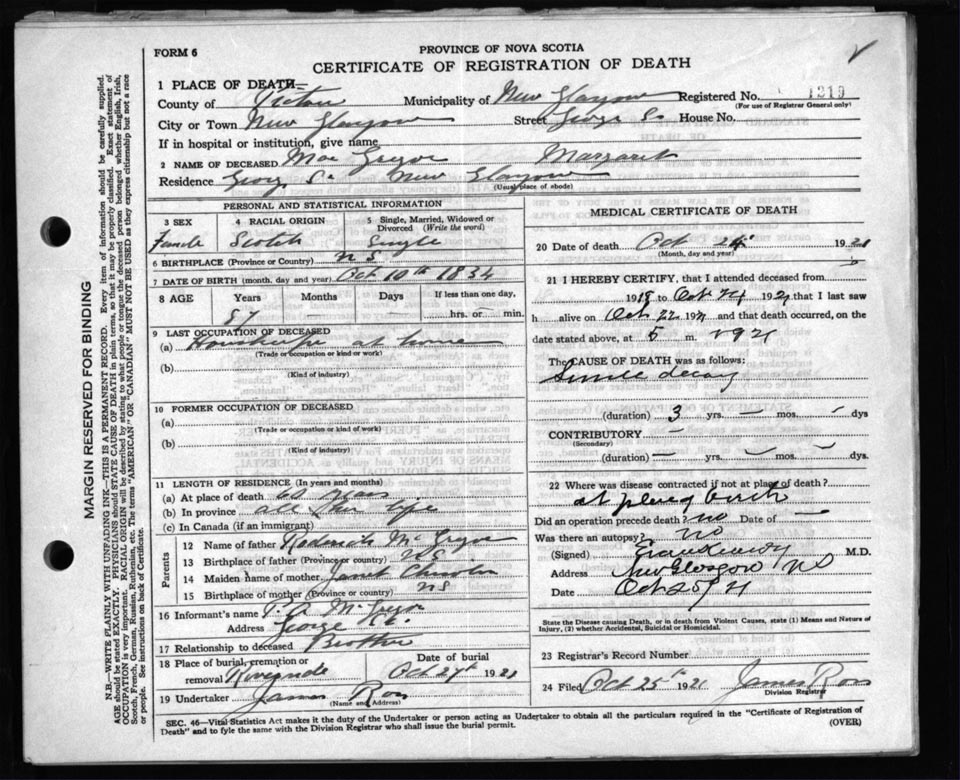 FORM 6
PROVINCE OF NOVA SCOTIA
CERTIFICATE OF REGISTRATION OF DEATH
1 PLACE OF DEATH—
County of Pictou Municipality of New Glasgow Registered No. 1219
(For use of Registrar General only)
City or Town New Glasgow Street George St House No.
If in hospital or institution, give name
2 NAME OF DECEASED Mac Gregor Margaret
Residence George St New Glasgow
(Usual place of abode)
PERSONAL AND STATISTICAL INFORMATION
3 SEX
Female
4 RACIAL ORIGIN
Scotch
5 Single, Married, Widowed or Divorced (Write the word)
Single
6 BIRTHPLACE (Province or Country) N S
7 DATE OF BIRTH (month, day and year) Oct 10th 1834
8 AGE Years Months Days If less than one day,
87 — — hrs. or min.
9 LAST OCCUPATION OF DECEASED
(a) at home
(Trade or occupation or kind or work)
(b)
(Kind of industry)
10 FORMER OCCUPATION OF DECEASED
(a)
(Trade or occupation or kind or work)
(b)
(Kind of industry)
11 LENGTH OF RESIDENCE (In years and months)
(a) At place of death 60 years
(b) In province all her life
(c) In Canada (if an immigrant)
Parents
12 Name of father Roderick McGregor
13 Birthplace of father (Province or country) NS
14 Maiden name of mother Janet
15 Birthplace of mother (Province or country) NS
16 Informant's name McGregor
Address George St.
17 Relationship to deceased Brother
18 Place of burial, cremation or removal Riverside
Date of burial
Oct 27th 1921
19 Undertaker James Ross
(Name and Address)
MEDICAL CERTIFICATE OF DEATH
20 Date of death Oct 24 1921
(Month, day and year)
21 I HEREBY CERTIFY, that I attended deceased from
1918 to Oct 24 1921 that I last saw
h alive on Oct 22 1921 and that death occurred, on the
date stated above, at 5 m. 1921
The CAUSE OF DEATH was as follows:
Senile decay
(duration) 3 yrs. — mos. dys
CONTRIBUTORY —
(Secondary)
(duration) — yrs. mos. dys
22 Where was disease contracted if not at place of death?
at place
Did an operation precede death? no Date of —
Was there an autopsy? no
(Signed) M.D.
Address New Glasgow NS
Date Oct 25 / 21
State the Disease causing Death, or in death from Violent Causes, state (1) Means and Nature of Injury, (2) whether Accidental, Suicidal or Homicidal.
23 Registrar's Record Number
24 Filed Oct 25th 1921 James Ross
Division Registrar
SEC. 46—Vital Statistics Act makes it the duty of the Undertaker or person acting as Undertaker to obtain all the particulars required in the "Certificate of Registration of
Death" and to fyle the same with the Division Registrar who shall issue the burial permit. (OVER)
MARGIN RESERVED FOR BINDING
N.B.—WRITE PLAINLY WITH UNFADING INK—THIS IS A PERMANENT RECORD. Every item of information should be carefully supplied.
AGE should be stated EXACTLY. PHYSICIANS should STATE CAUSE OF DEATH in plain terms, so that it may be properly classified. Exact statement of
OCCUPATION is very important. RACIAL ORIGIN will be described by stating to what people or tongue the deceased person belonged whether English, Irish,
Scotch, French, German, Russian, Ruthenian, etc. The terms "AMERICAN" OR "CANADIAN" MUST NOT BE USED as they express citizenship but not a race
or people. See instructions on back of Certificate.